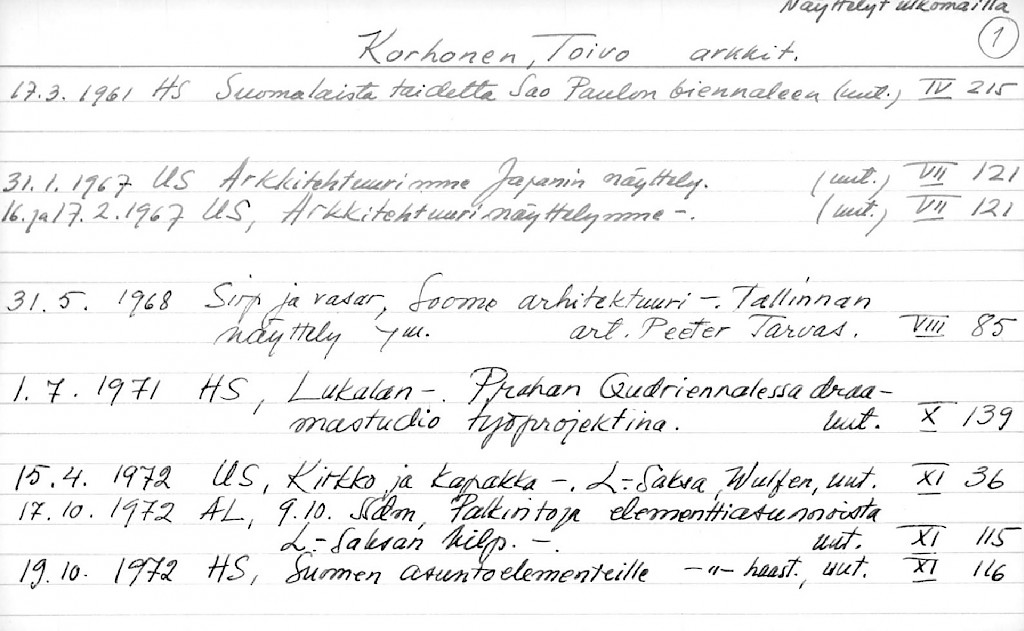 Näyttelyt ulkomailla
1
Korhonen, Toivo arkkit.
17.3. 1961 HS Suomalaista taidetta Sao Paulon biennaleen (uut.) IV 215
31.1.1967 US Arkkitehtuurimme Japanin näyttely. (uut.) VII 121
16. ja 17.2.1967 US, Arkkitehtuurinäyttelymme -. (uut.) VII 121
31.5. 1968 Sirp ja vasar, Soome arhitektuuri -. Tallinnan
näyttely ym. art. Peeter Tarvas. VIII 85
1.7. 1971 HS, Lukalan -. Prahan Qudriennalessa draa-
mastudio työprojektina. uut. X 139
15.4. 1972 US, Kirkko ja kapakka -. L-Saksa, Wulfen, uut. XI 36
17.10. 1972 AL, 9.10. Sdm, Palkintoja elementtiasunnoista
L-Saksan kilp. -. uut. XI 115
19.10. 1972 HS, Suomen asuntoelementeille -"- haast., uut. XI 116